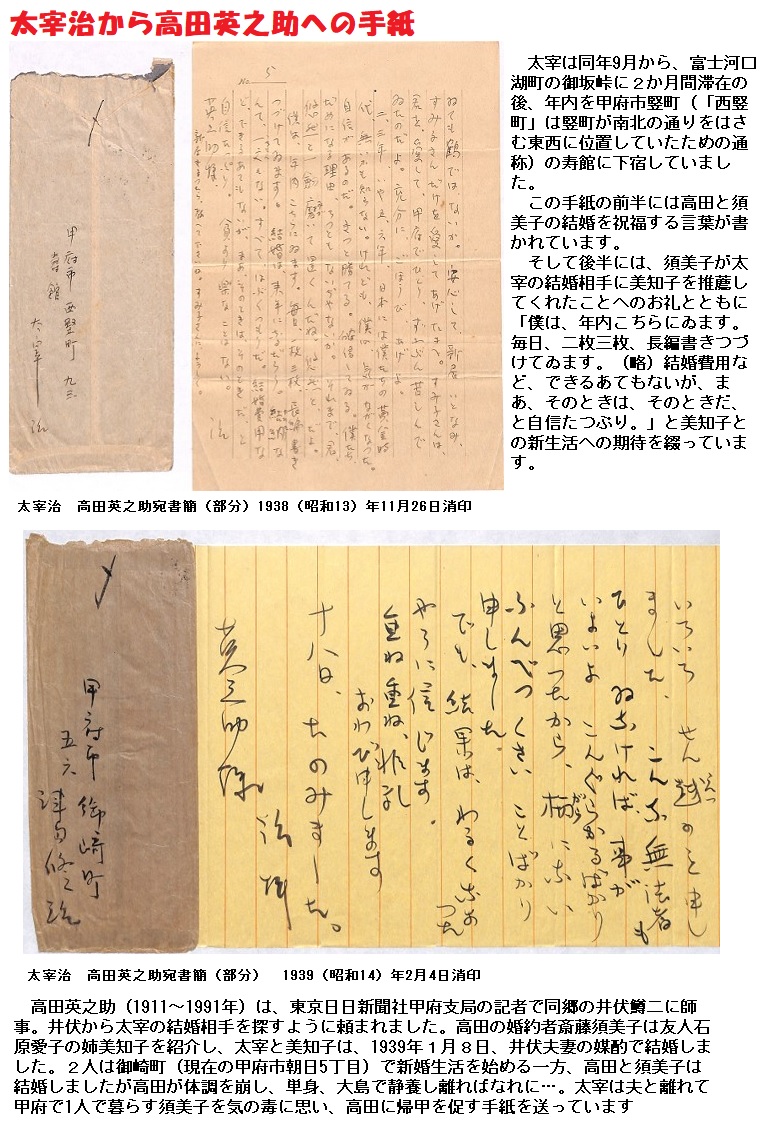 太宰治から高田英之助への手紙
太宰は同年9月から、富士河口
湖町の御坂峠に２か月間滞在の
後、年内を甲府市竪町（「西竪
町」は竪町が南北の通りをはさ
む東西に位置していたための通
称）の寿館に下宿していまし
た。
この手紙の前半には高田と須
美子の結婚を祝福する言葉が書
かれています。
そして後半には、須美子が太
宰の結婚相手に美知子を推薦し
てくれたことへのお礼とともに
「僕は、年内こちらにゐます。
毎日、二枚三枚、長編書きつづ
けてゐます。（略）結婚費用な
ど、できるあてもないが、ま
あ、そのときは、そのときだ、
と自信たつぷり。」と美知子と
の新生活への期待を綴っていま
す。
甲府市西竪町九三
寿館
太宰治
No. 5
ゐても鶴ではないか。安心して、新居いとなみ、
すみ子さんだけを愛してあげたまへ。すみ子さんは、
君を、愛して、甲府でひとり、ずゐぶん苦しんで
ゐたのだよ。充分に、ごほうび、あげよ。
二、三年、いや五、六年、日本には僕たちの黄金時
代、無いかも知らない。けれども、僕は、気がながくなつた。
自信があるのだ。きつと勝てる。確信してゐる。僕たち、
だめになる理由、ちつともないぢやないか。それまで、君、
悠然と剣磨いて置くんだね。悠然と、だよ。
僕は、年内こちらにゐます。毎日、二枚三枚、長篇書き
つづけてゐます。結婚は、来年になるだらう。
んて、一文もない。すべて、はぶくつもり。結婚費用な
ど、できるあてもないが、まあ、そのときは、そのときだ、と
自信たつぷり。
英之助様。
治
太宰治　高田英之助宛書簡（部分）1938（昭和13）年11月26日消印
甲府市御崎町
五六
津島修治
いろいろ　せん越のこと申し
ました、　こんな無法者も
ひとり　ゐなければ、事が
いよいよ　こんぐらかるばかり
と思つたから、柄にない
ふんべつくさい　ことばかり
申しました。
でも、結果は、わるくなかつた
やうに信じます。
重ね重ね、非礼
おわび申します
十八日、たのみました。
治拝
英之助様
太宰治　高田英之助宛書簡（部分）　1939（昭和14）年2月4日消印
高田英之助（1911～1991年）は、東京日日新聞社甲府支局の記者で同郷の井伏鱒二に師
事。井伏から太宰の結婚相手を探すように頼まれました。高田の婚約者斎藤須美子は友人石
原愛子の姉美知子を紹介し、太宰と美知子は、1939年１月８日、井伏夫妻の媒酌で結婚しま
した。２人は御崎町（現在の甲府市朝日5丁目）で新婚生活を始める一方、高田と須美子は
結婚しましたが高田が体調を崩し、単身、大島で静養し離ればなれに…。太宰は夫と離れて
甲府で1人で暮らす須美子を気の毒に思い、高田に帰甲を促す手紙を送っています